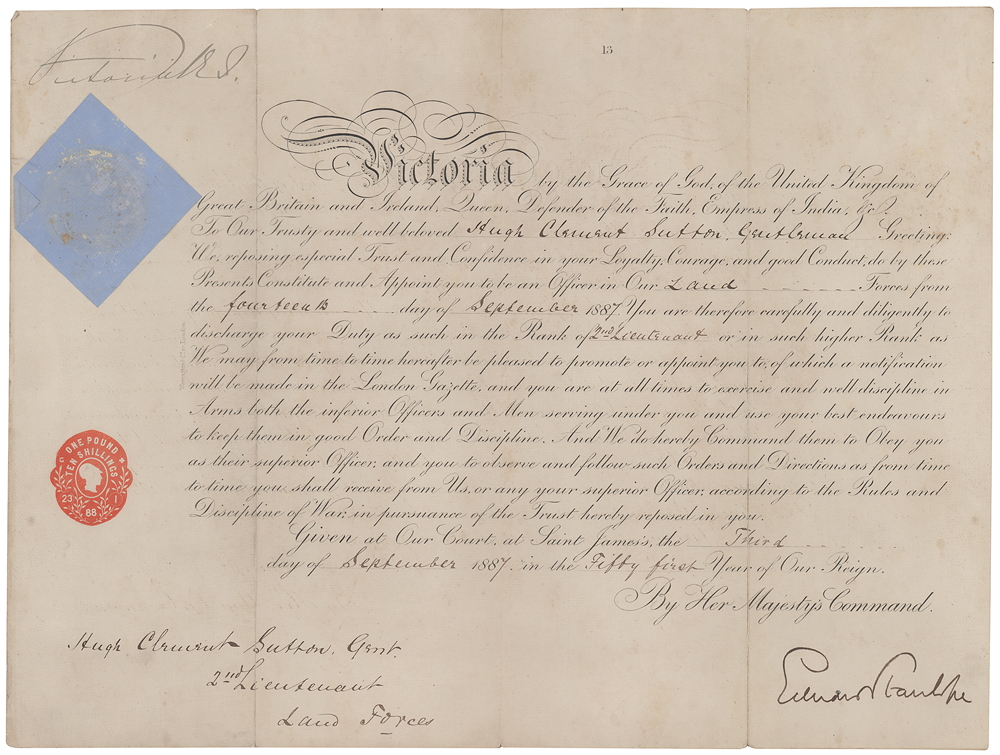 Victoria R I.
13
Victoria by the Grace of God, of the United Kingdom of
Great Britain and Ireland, Queen, Defender of the Faith, Empress of India, &c.
To Our Trusty and well beloved Hugh Clement Sutton, Gentleman Greeting:
We, reposing especial Trust and Confidence in your Loyalty, Courage, and good Conduct, do by these
Presents Constitute and Appoint you to be an Officer in Our Land Forces from
the fourteenth day of September 1887. You are therefore carefully and diligently to
discharge your Duty as such in the Rank of 2nd Lieutenant or in such higher Rank as
We may from time to time hereafter be pleased to promote or appoint you to, of which a notification
will be made in the London Gazette, and you are at all times to exercise and well discipline in
Arms both the inferior Officers and Men serving under you and use your best endeavours
to keep them in good Order and Discipline. And We do hereby Command them to Obey you
as their superior Officer, and you to observe and follow such Orders and Directions as from time
to time you shall receive from Us, or any your superior Officer, according to the Rules and
Discipline of War, in pursuance of the Trust hereby reposed in you.
Given at Our Court, at Saint James's, the Third
day of September 1887. in the Fifty first Year of Our Reign.
By Her Majesty's Command.
ONE POUND
TEN SHILLINGS
23 1
88
Hugh Clement Sutton, Gent.
2nd Lieutenant
Land Forces
Edward Stanhope